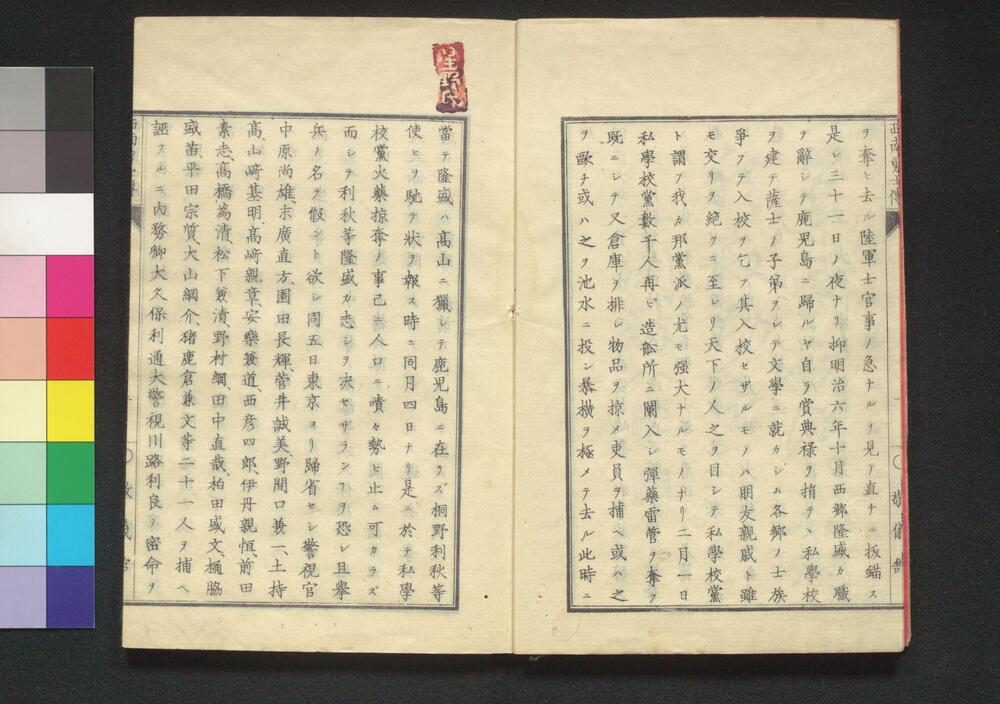 ヲ奪ヒ去ル陸軍士官事ノ急ナルヲ見テ直チニ抜錨ス
是レ三十一日ノ夜ナリ抑明治六年十月西郷隆盛カ職
ヲ辭シテ鹿児島ニ歸ルヤ自ラ賞典禄ヲ捐テヽ私學校
ヲ建テ薩士ノ子弟ヲシテ文學ニ就カシム各郷ノ士族
爭フテ入校ヲ乞フ其入校セザルモノハ朋友親戚ト雖
モ交リヲ絶ツニ至レリ天下ノ人之ヲ目シテ私學校黨
ト謂フ我カ邦黨派ノ尤モ强大ナルモノナリ二月一日
私學校黨數千人再ビ造船所ニ闌入シ彈藥雷管ヲ奪フ
既ニシテ又倉庫ヲ排シ物品ヲ掠メ吏員ヲ捕ヘ或ハ之
ヲ歐チ或ハ之ヲ池水ニ投シ暴横ヲ極メテ去ル此時ニ
當テ隆盛ハ髙山ニ獵シテ鹿児島ニ在ラズ桐野利秋等
使ヒヲ馳テ狀ヲ報ス時ニ同月四日ナリ是ニ於テ私學
校黨火藥掠奪ノ事已ニ人口ニ嘖々勢ヒ止ム可カラズ
而シテ利秋等隆盛カ志シヲ决セザランヿヲ恐レ且擧
兵ノ名ヲ假ント欲シ同五日東京ヨリ歸省セシ警視官
中原尚雄、末廣直方、園田長輝、菅井誠美野間口兼一、土持
髙、山﨑基明、髙﨑親章、安樂兼道、西彦四郎、伊丹親恒、前田
素志、髙橋為清、松下兼清、野村綱、田中直哉、柏田盛文、樋脇
盛苗、平田宗質、大山綱介、猪鹿倉兼文等二十一人ヲ捕ヘ
誣フルニ内務卿大久保利通大警視川路利良ノ密命ヲ